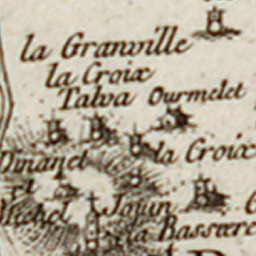 la Granville
la Croix
Talva Ourmelet
Dinanet la Croix
et
Michel Jouin
la Bassœre